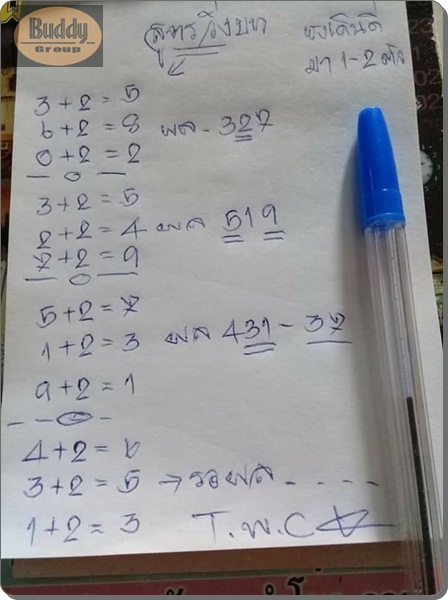 Buddy
Group
สูตรวิ่งบน
ยังเดินดี
มา 1-2 ตัว
3+2=5
6+2=8
0+2=2
ผล - 327
3+2=5
2+2=4
7+2=9
ผล 519
5+2=7
1+2=3
9+2=1
ผล 431 - 37
4+2=6
3+2=5 → รอผล - - - -
1+2=3
T.W.C